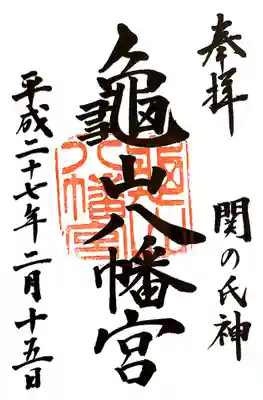 奉拝
関の氏神
龜山八幡宮
平成二十七年二月十五日